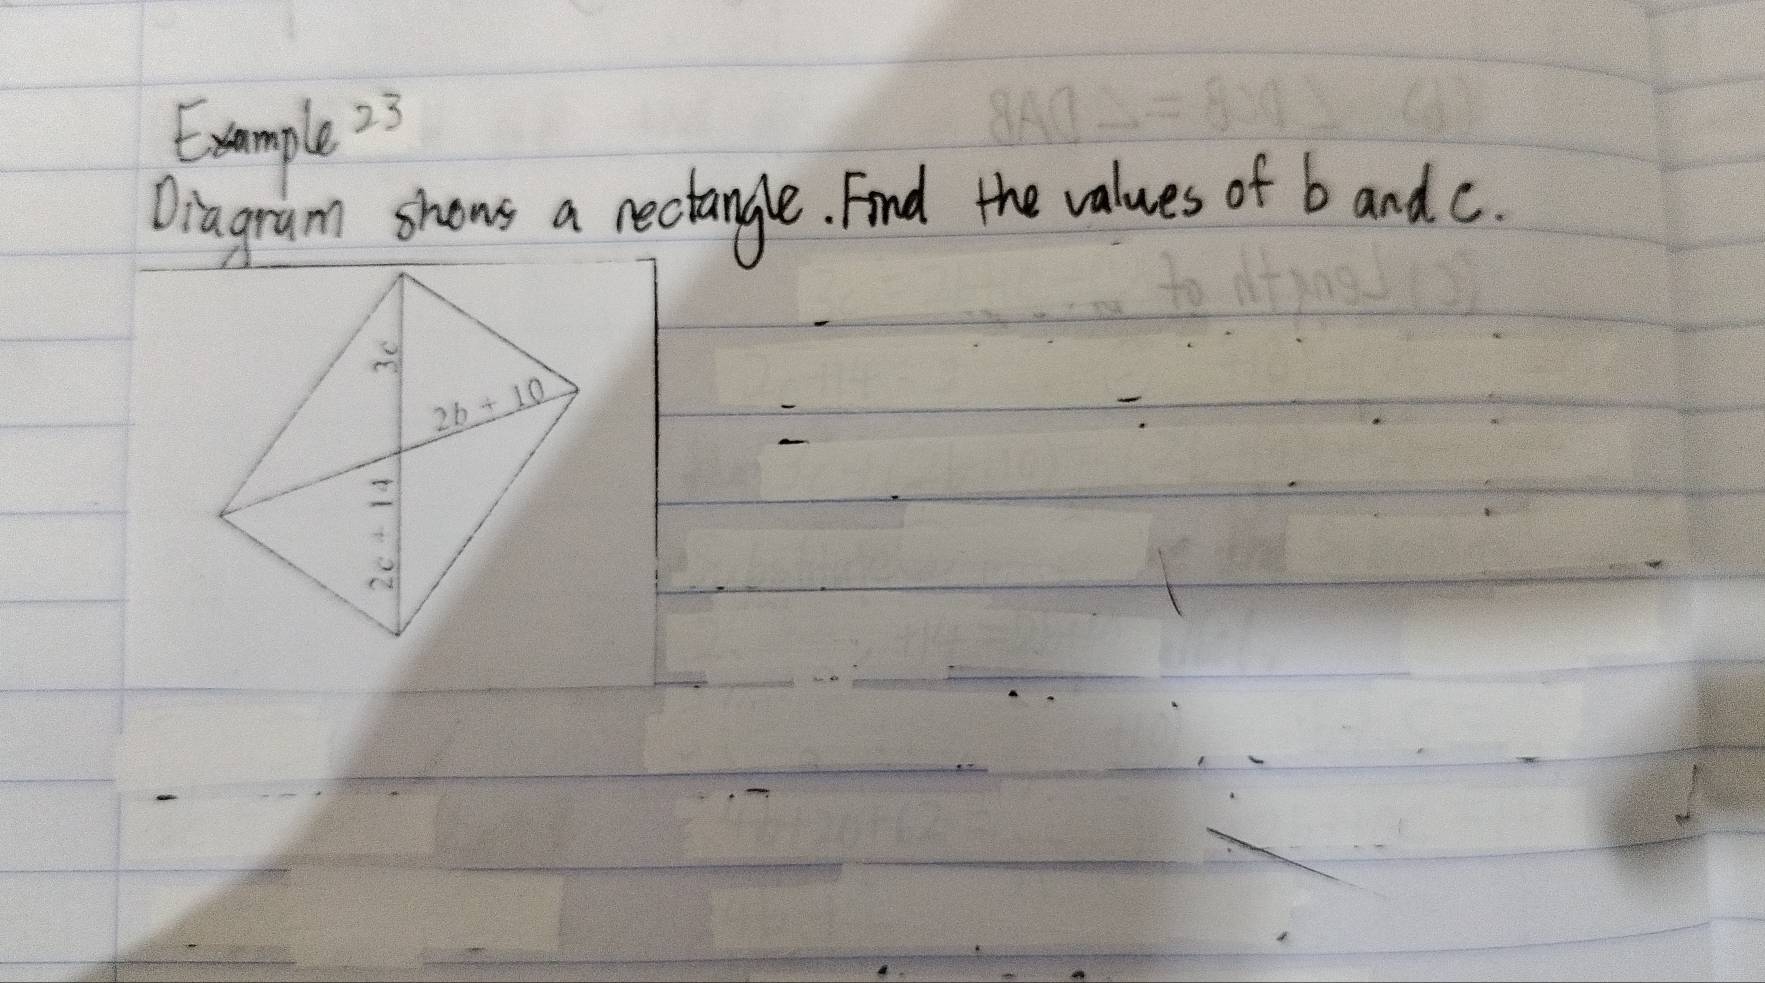 Example 23
Diagram shows a rectangle. Find the values of b and c.
3c
2b + 10
2c + 14